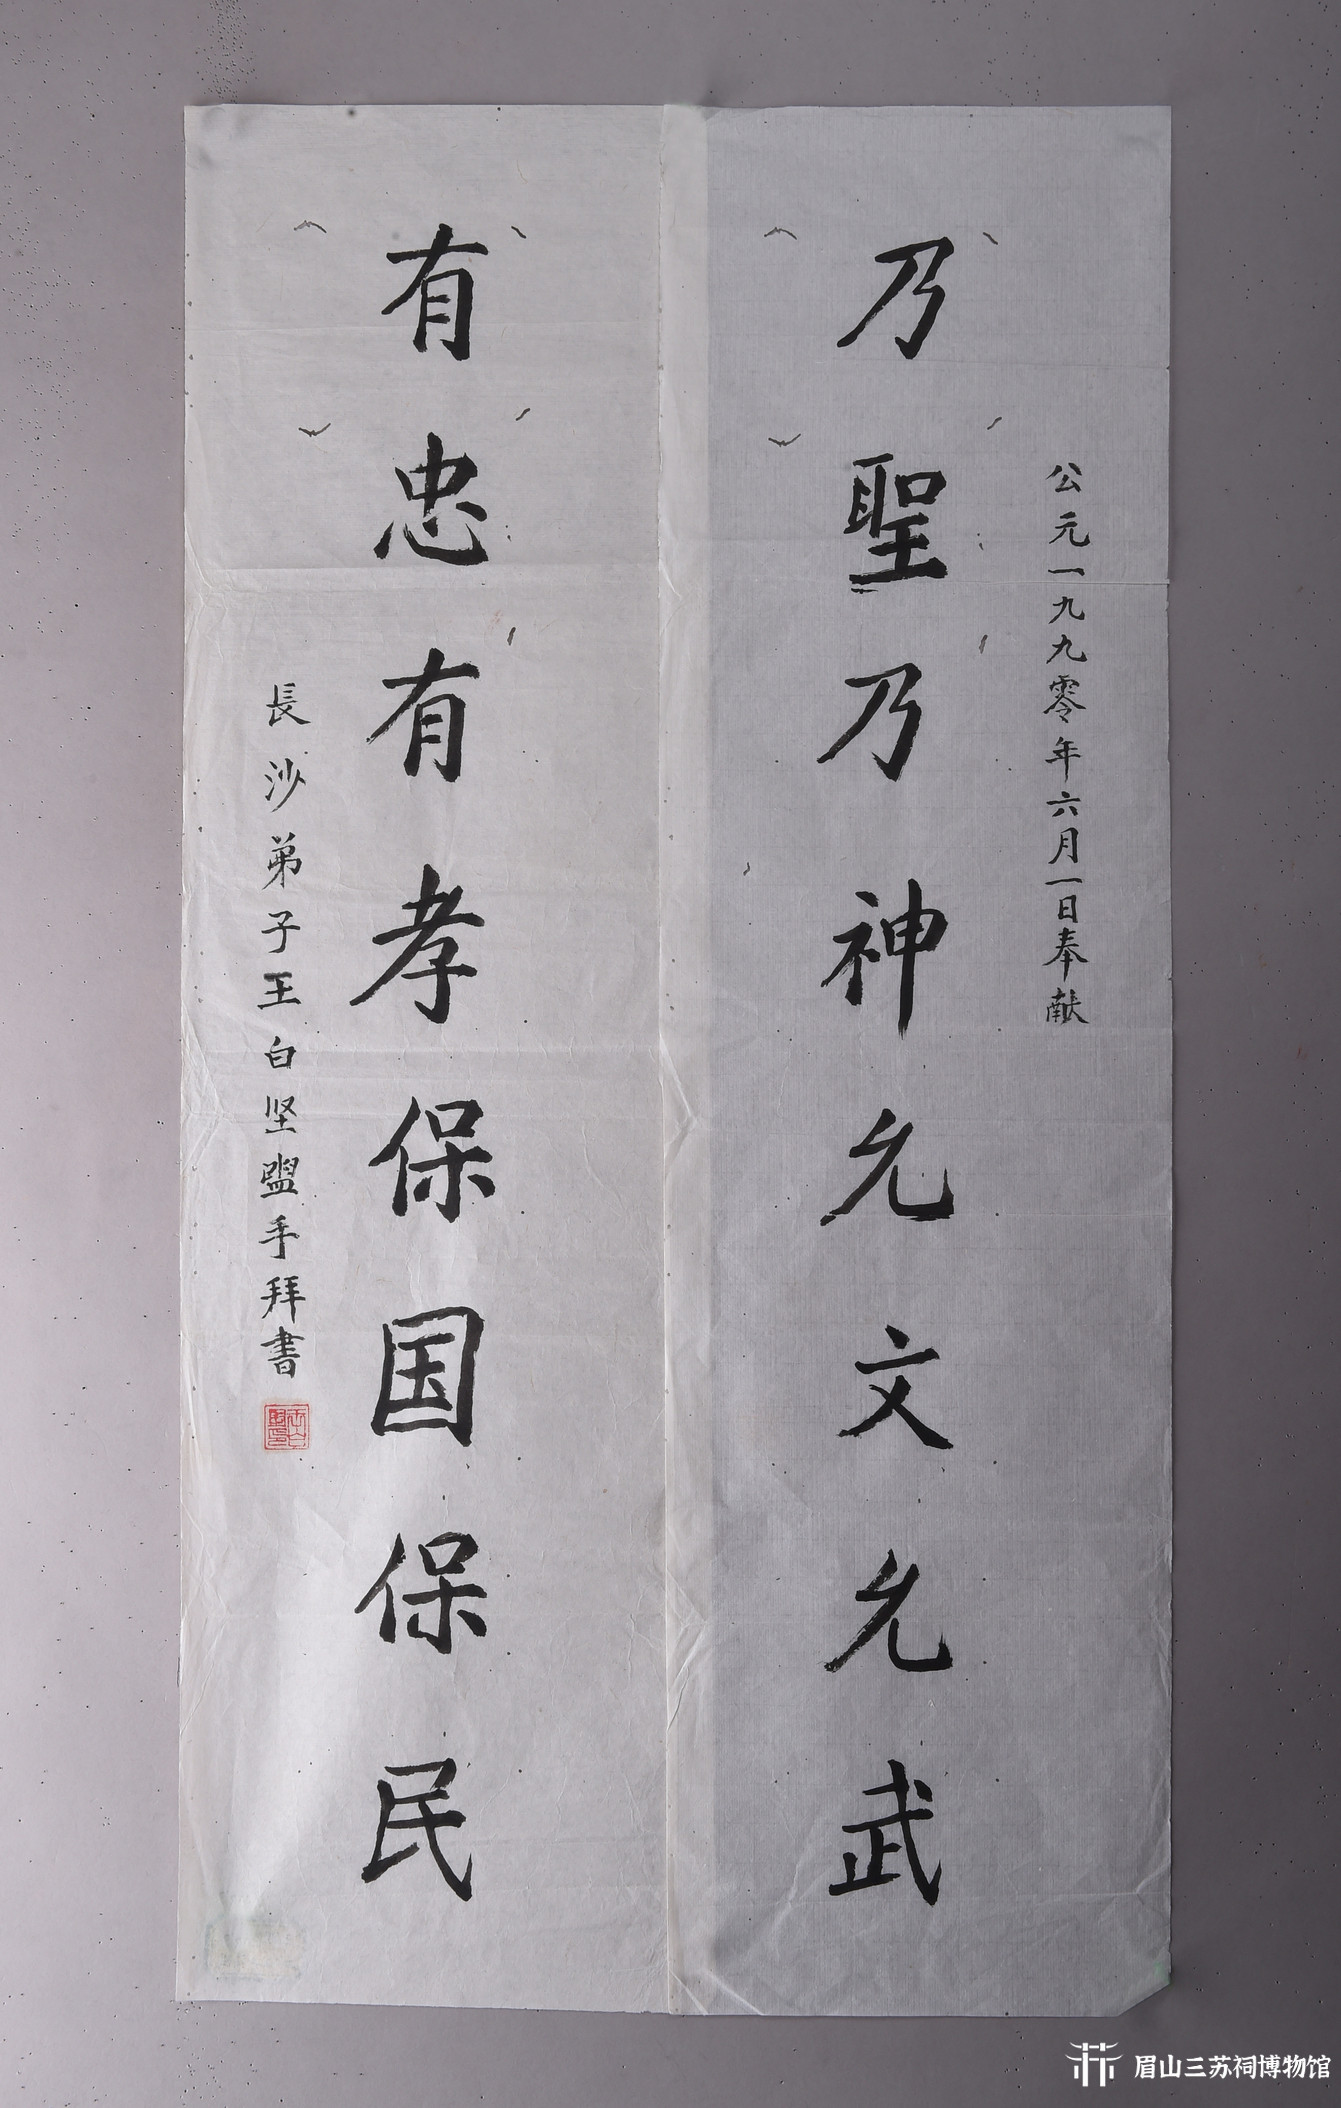 公元一九九零年六月一日奉献
乃聖乃神允文允武
有忠有孝保国保民
長沙弟子王白坚盥手拜書
眉山三苏祠博物馆